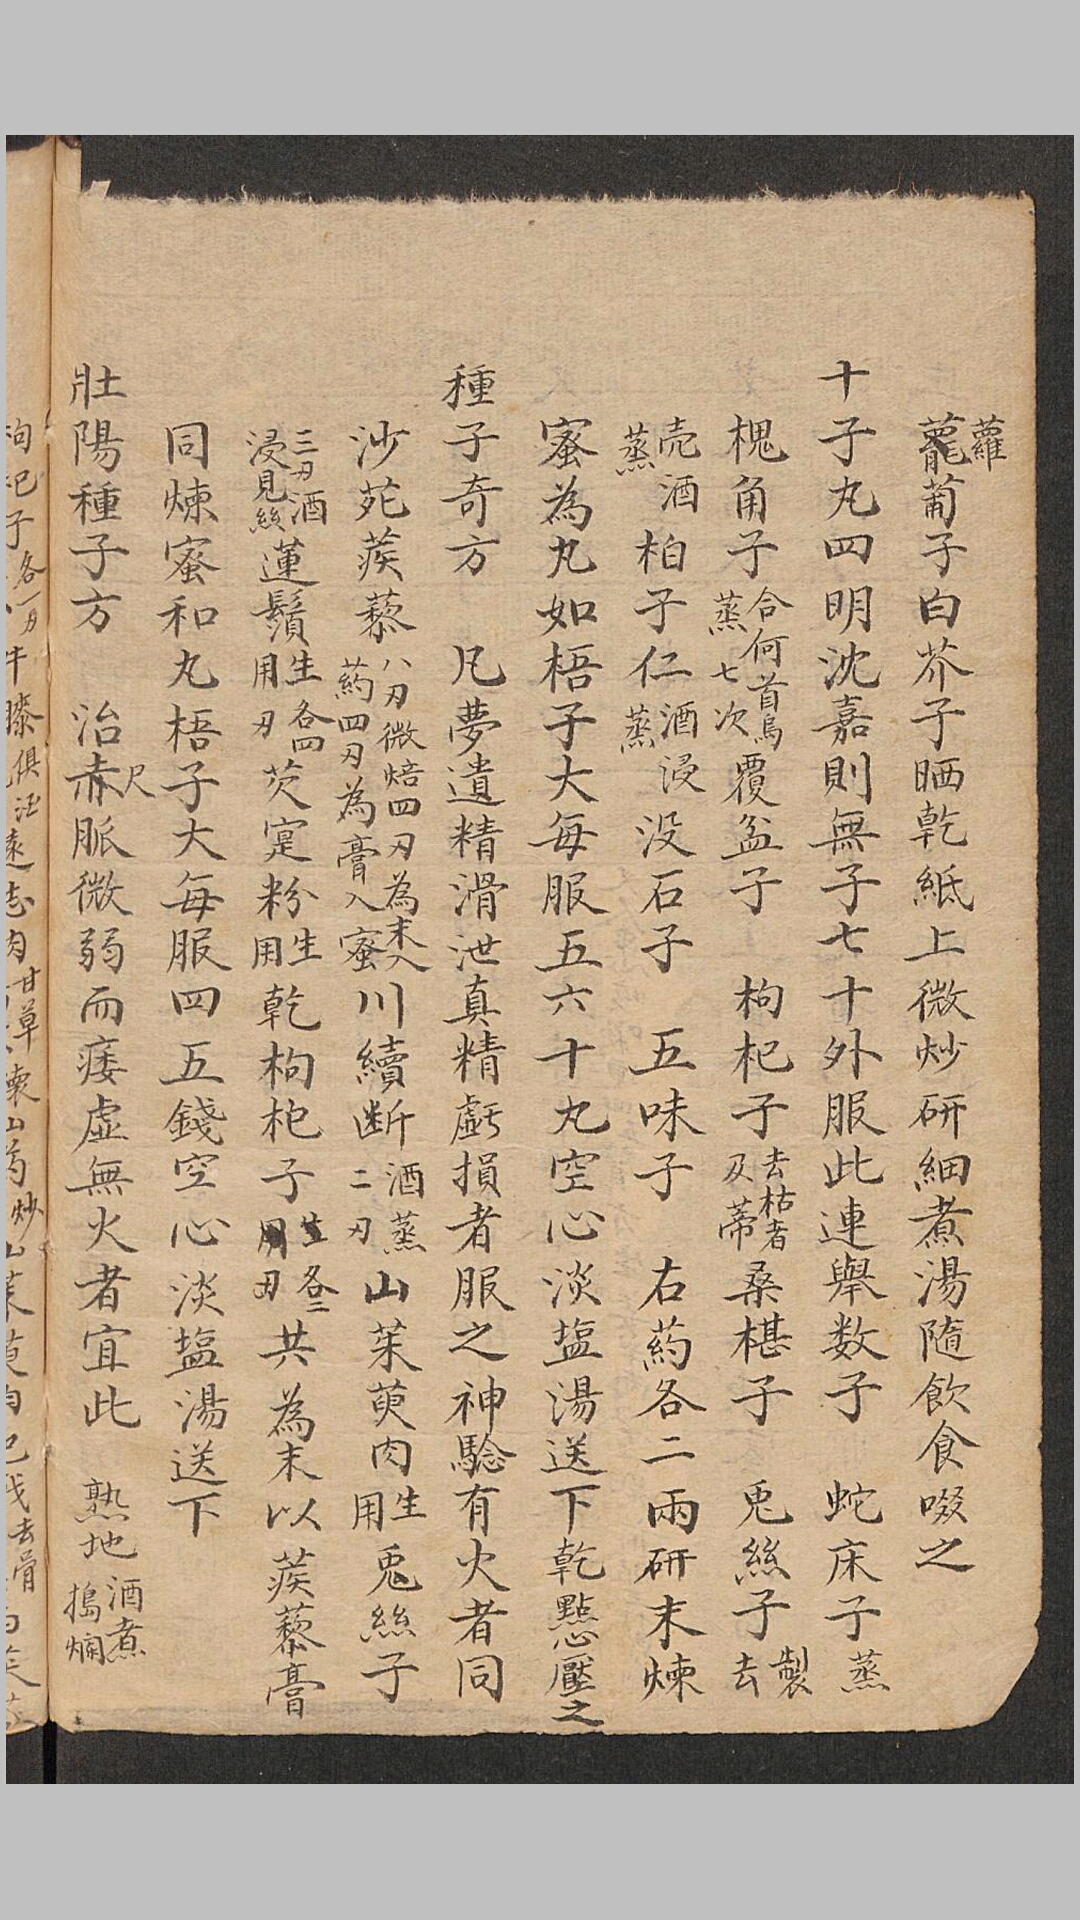 蘿蔔子白芥子晒乾紙上微炒研細煮湯隨飲食啜之
十子丸四明沈嘉則無子七十外服此連舉数子　蛇床子蒸
槐角子合何首烏蒸七次覆盆子　枸杞子去枯者及蒂桑椹子　兎絲子製去
売酒蒸柏子仁酒浸蒸没石子　五味子　右葯各二兩研末煉
蜜為丸如梧子大每服五六十丸空心淡塩湯送下乾點心壓之
種子奇方　凡夢遺精滑泄真精虧損者服之神驗有火者同
沙苑蒺藜八刄微焙四刄為末入葯四刄為膏入蜜川續断酒蒸二刄山茱萸肉生用兎絲子
三刄酒浸見絲蓮鬚生用各四刄芡寔粉生用乾枸杞子各二刄共為末以蒺藜膏
同煉蜜和丸梧子大每服四五錢空心淡塩湯送下
壯陽種子方　治赤尺脈微弱而痿虛無火者宜此　熟地酒煮搗爛